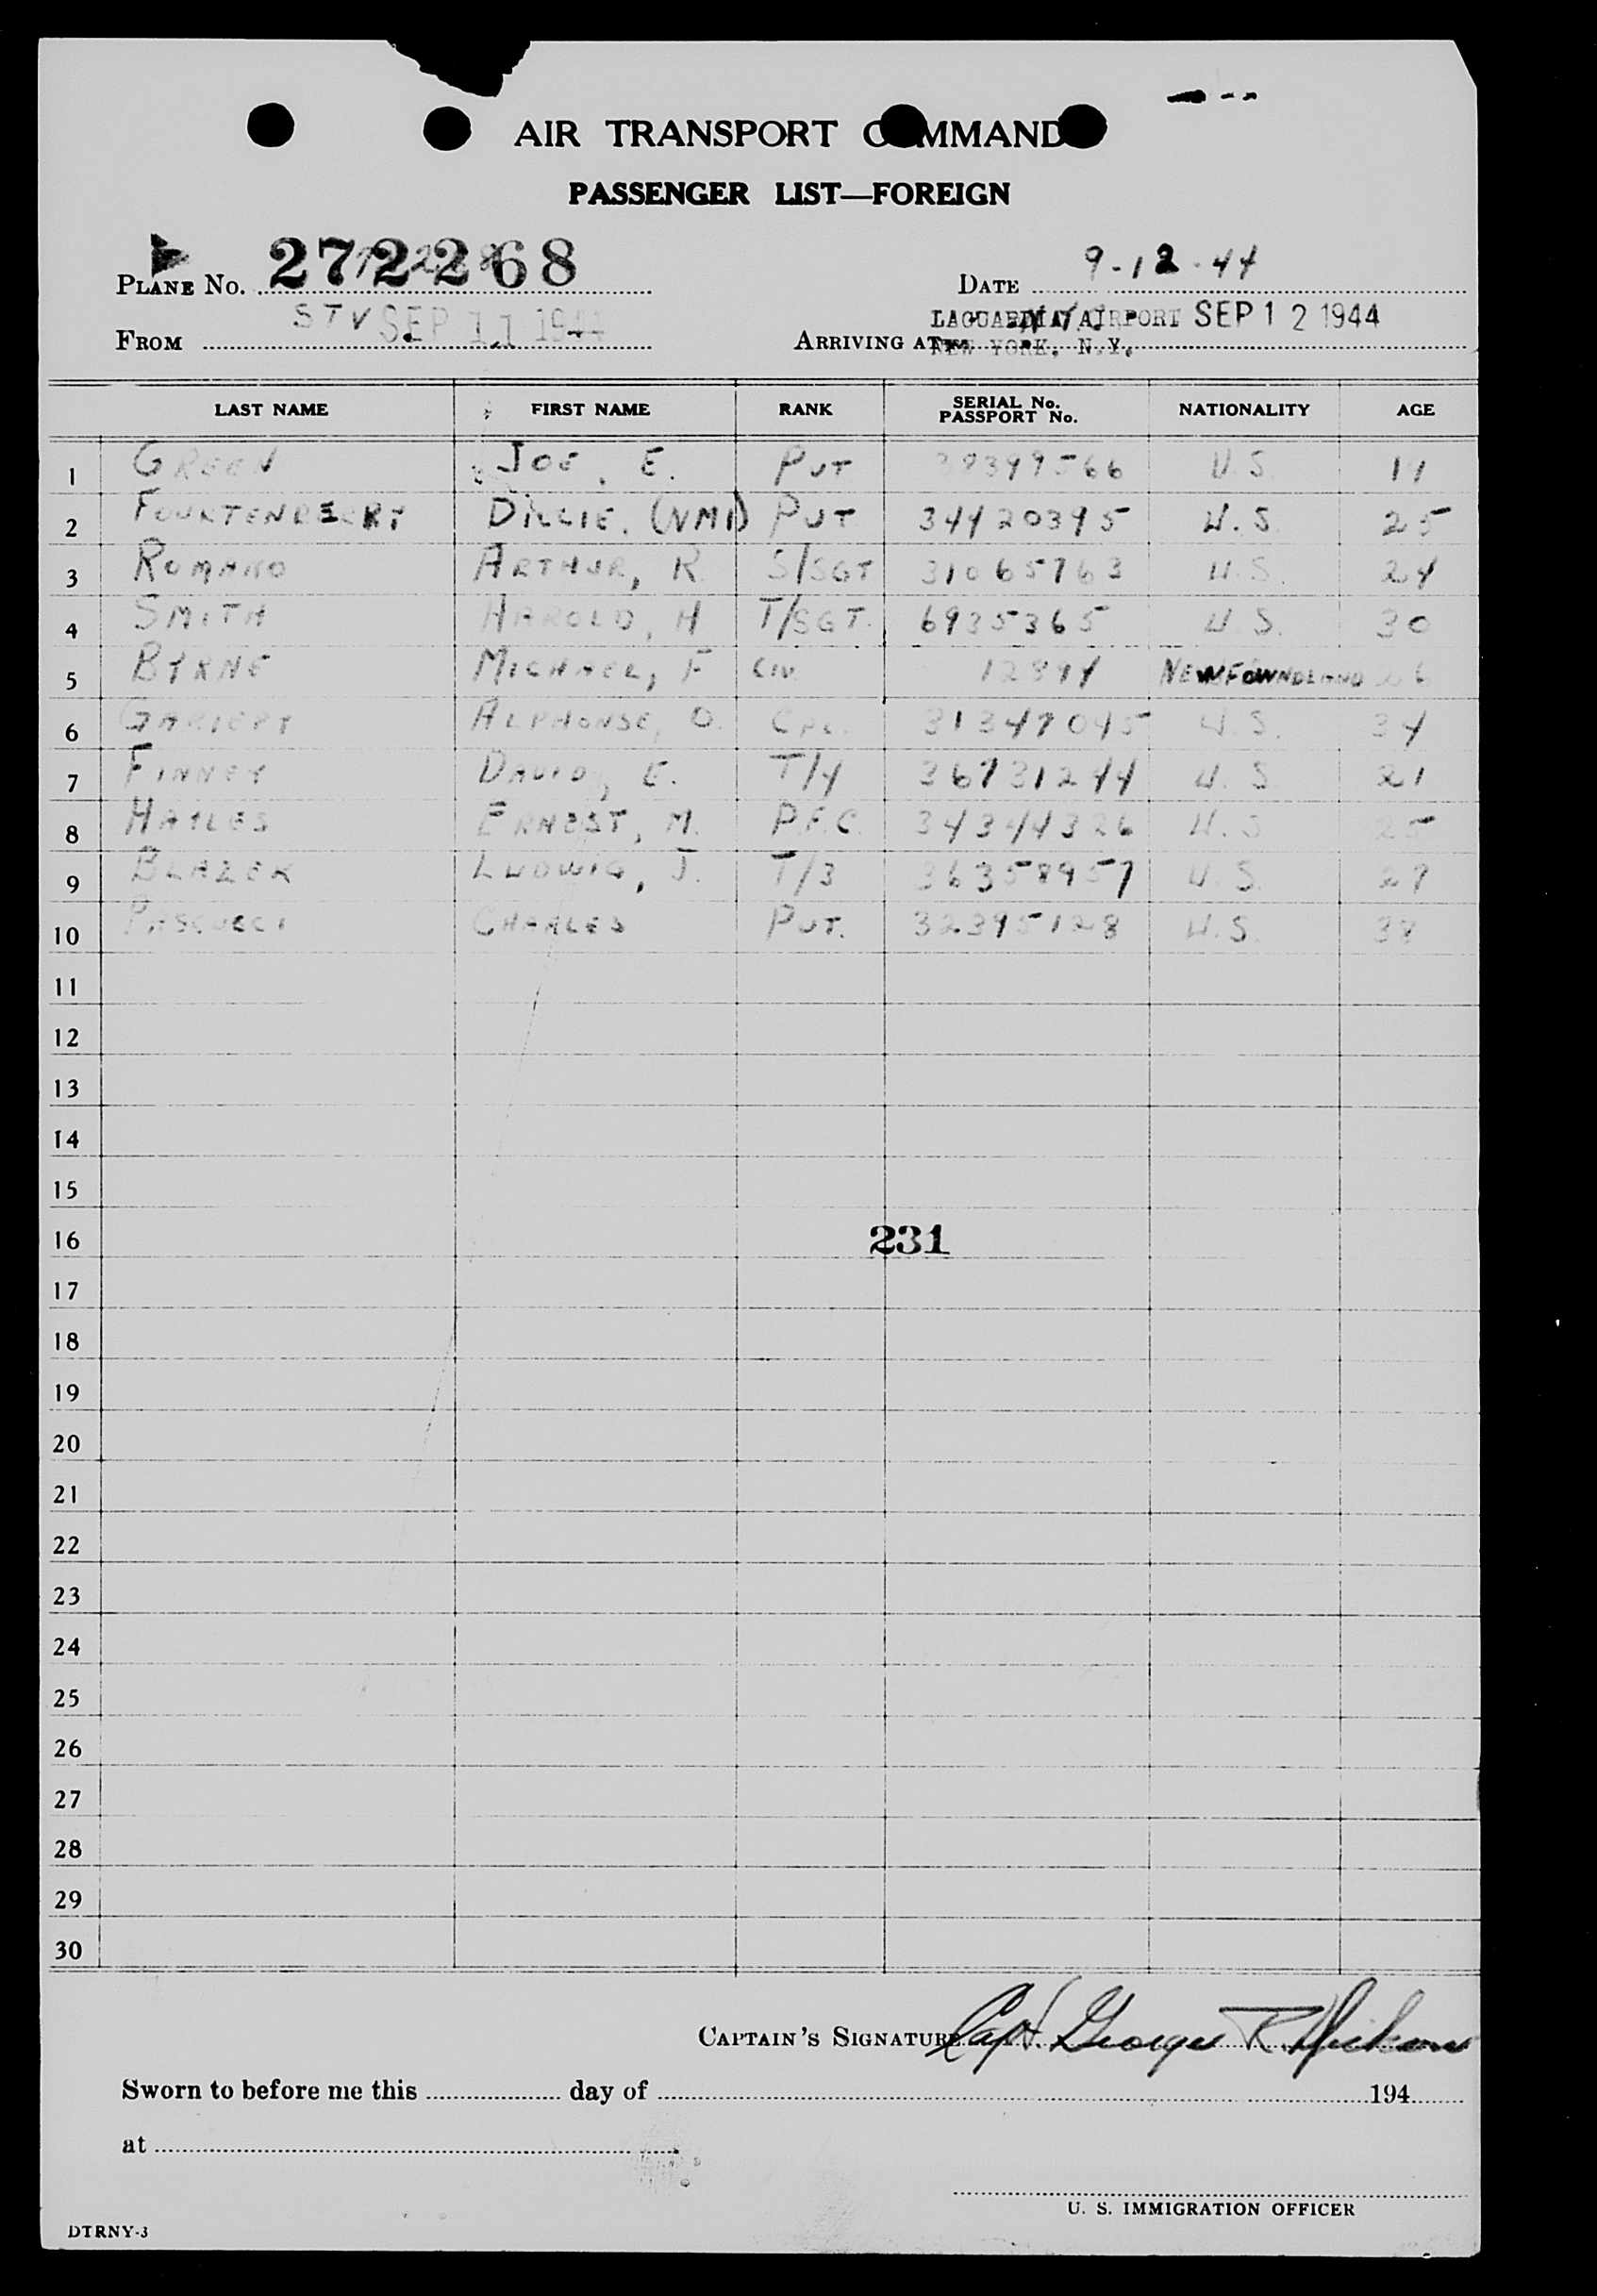 AIR TRANSPORT COMMAND
PASSENGER LIST—FOREIGN
PLANE No. 272268
DATE 9-12-44
FROM STV SEP 11 1944
ARRIVING AT LAGUARDIA AIRPORT SEP 12 1944
NEW YORK, N.Y.
LAST NAME FIRST NAME RANK SERIAL No. PASSPORT No. NATIONALITY AGE
1 GREEN JOE, E. PVT 39399566 U.S. 19
2 DILLIE. (NMI) PVT 34420395 U.S. 25
3 ROMANO ARTHUR, R. S/SGT 31065763 U.S. 24
4 SMITH HAROLD, H T/SGT. 6935365 U.S. 30
5 BYRNE MICHAEL, F CIV. 12894 NEWFOWNDLAND
6 GARIEPY ALPHONSE, O. CPL. 31347045 U.S. 34
7 FINNEY DAVID, E. T/4 36731244 U.S. 21
8 HAYLES ERNEST, M. PFC. 34344326 U.S. 25
9 BLAZEK LUDWIG, J. T/3 36358957 U.S. 27
10 PASCUCCI CHARLES PVT. 32395128 U.S. 38
11
12
13
14
15
16 231
17
18
19
20
21
22
23
24
25
26
27
28
29
30
CAPTAIN'S SIGNATURE Capt. George R. Hickow
Sworn to before me this day of 194
at
U. S. IMMIGRATION OFFICER
DTRNY-3